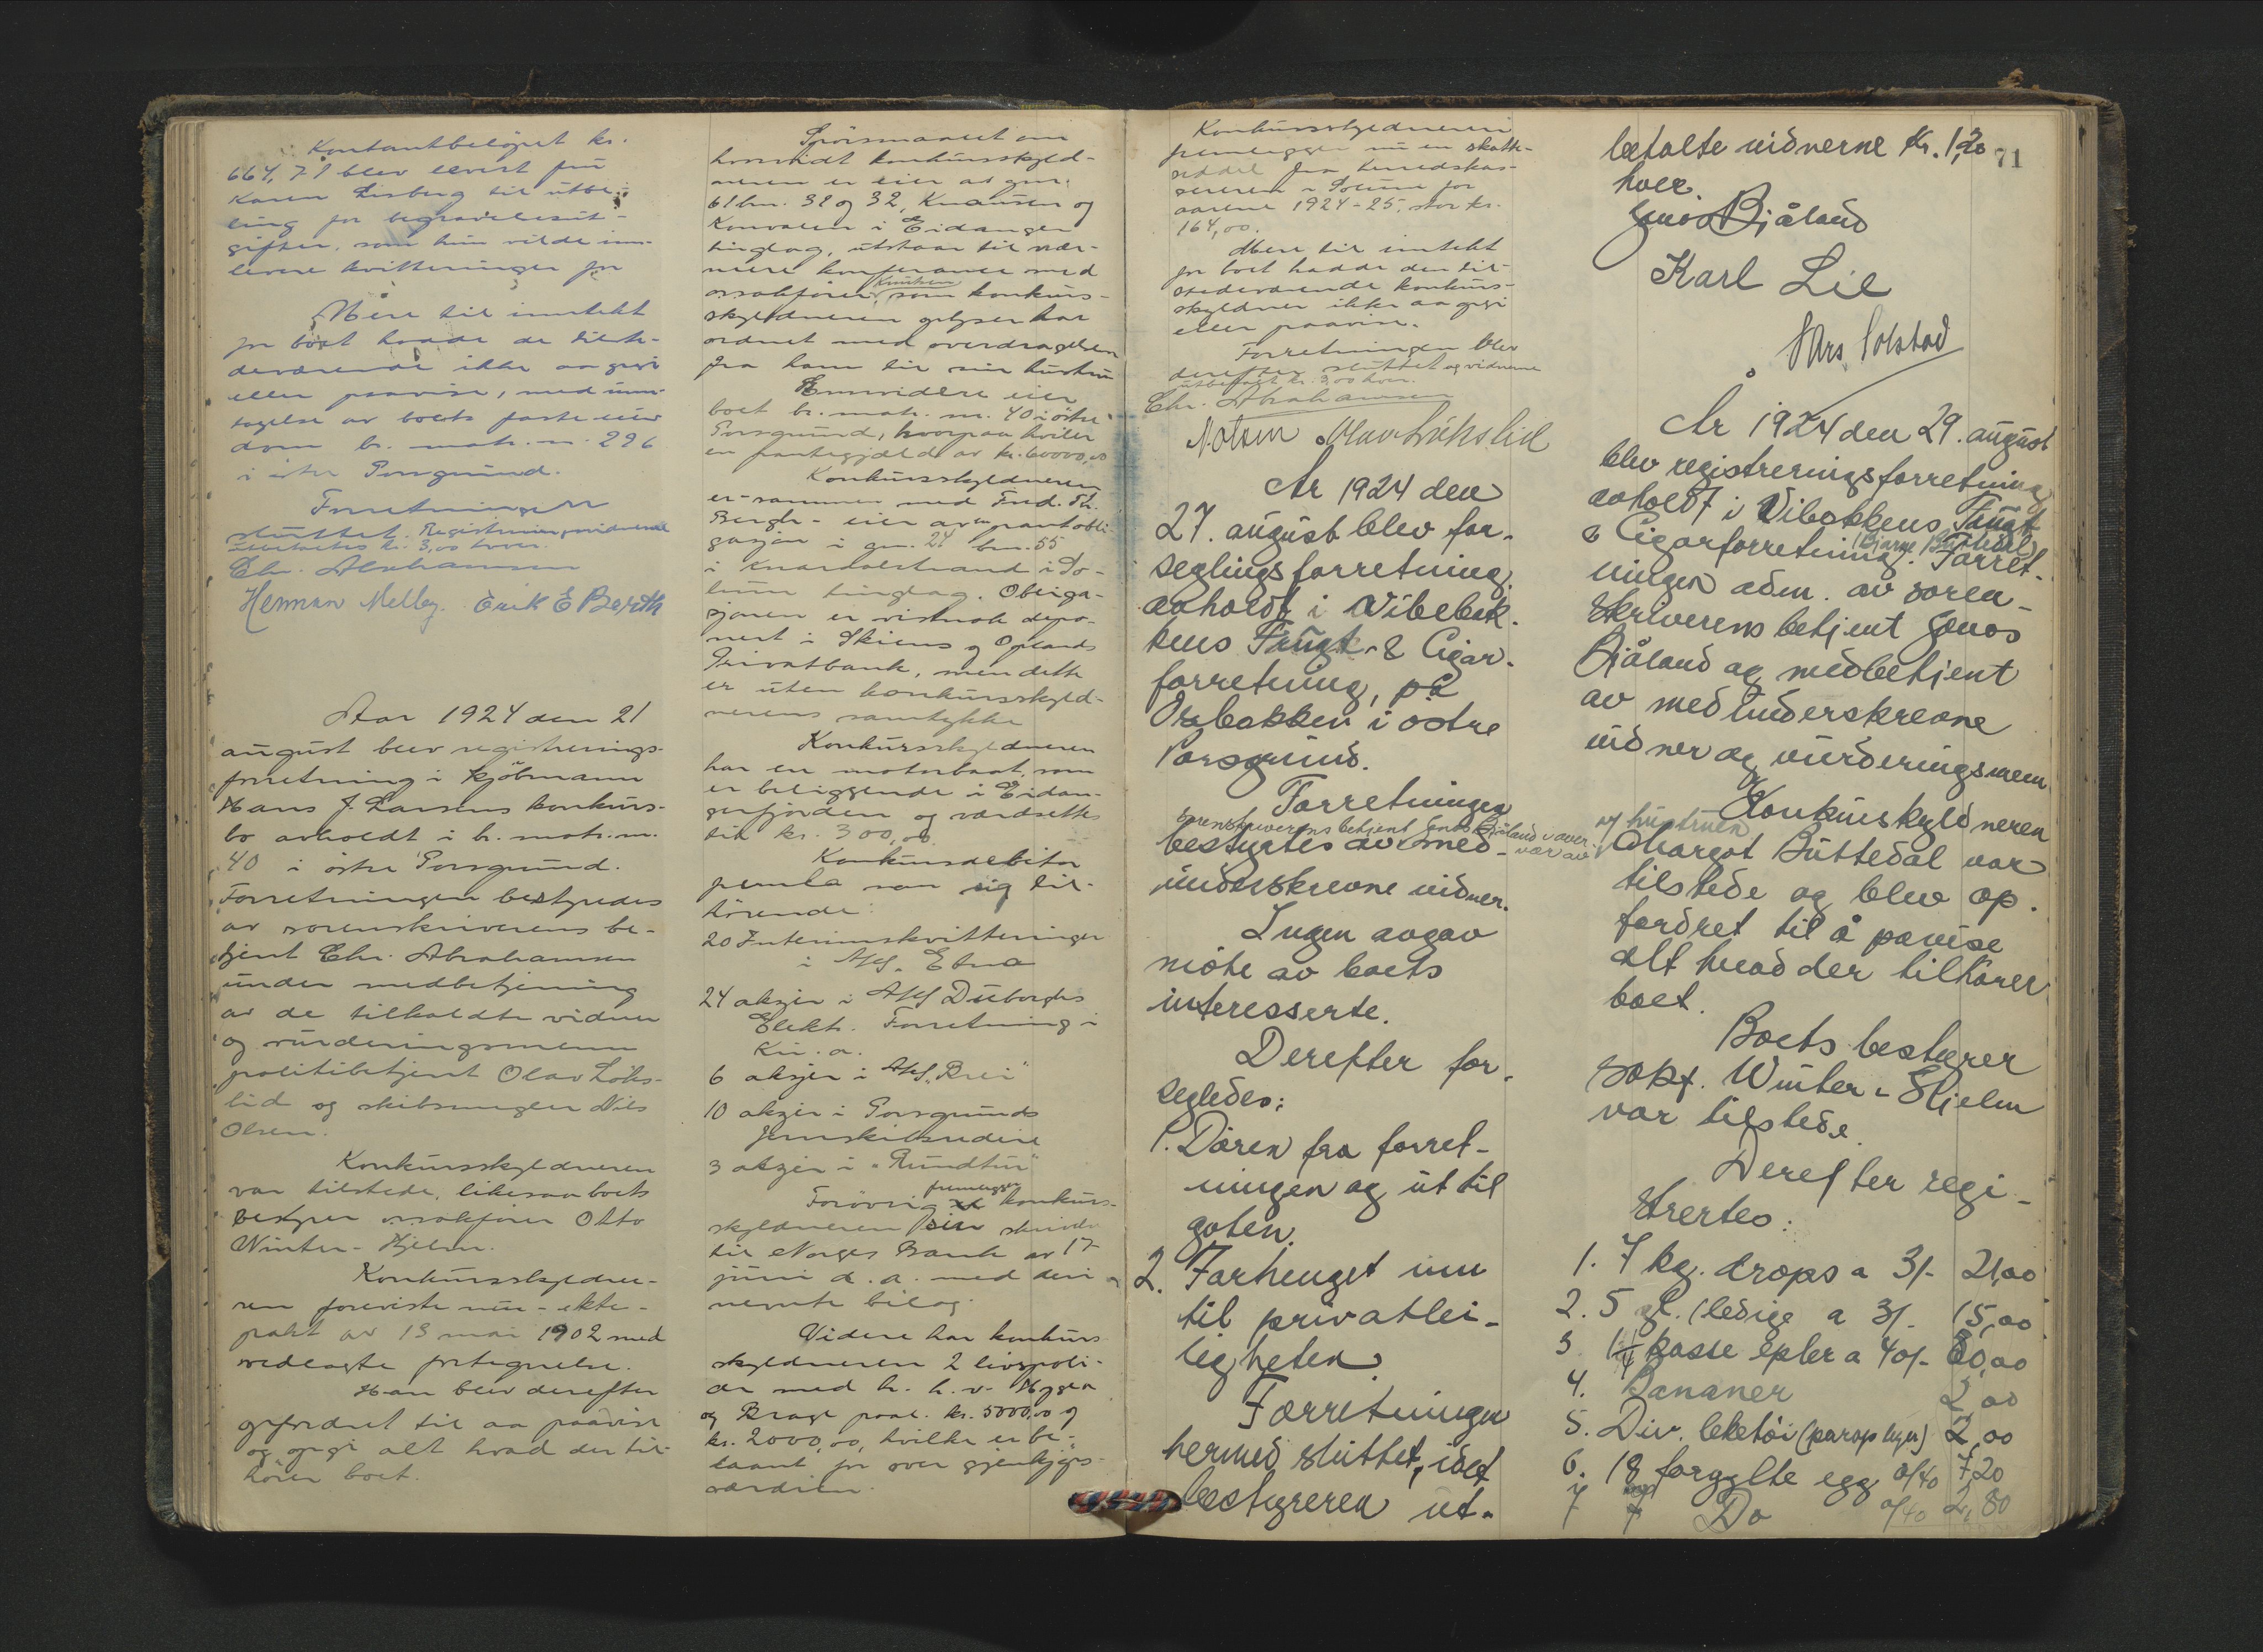 Kontantbeløpet kr.
664,71 blev levert fru
Karen Lisberg til utbe-
ling for begravelsesut-
gifter, som hun vilde inn-
levere kvitteringer for
Mere til inntekt
for boet hadde de tilste-
deværende ikke aa opgi
eller paavise, med unn-
tagelse av boets faste eien-
dom br. matr. nr. 296
i østre Porsgrund.
Forretningen
sluttet. Registreringsvidnerne
utbetaltes kr. 3,00 hver.
Chr. Abrahamsen
Herman Melby. Erik E Berth
Aar 1924 den 21
august blev registrerings-
forretning i kjøbmann
Hans J. Larsens konkurs-
bo avholdt i br. matr. nr.
40 i østre Porsgrund.
Forretningen bestyredes
av sorenskriverens be-
tjent Chr. Abrahamsen
under medbetjening
av de tilkaldte vidner
og vurderingsmenn
politibetjent Olav Løks-
lid og skibsmegler Nils
Olsen.
Konkursskyldneren
var tilstede, likesaa boets
bestyrer o.r.sakfører Otto
Winter-Hjelm.
Konkursskyldne-
ren foreviste nu - ekte-
pakt av 13 mai 1902 med
vedlagte fortegnelse.
Han blev derefter
opfordret til aa paavise
og opgi alt hvad der til-
hører boet.
Spørsmaalet om
hvorvidt konkursskyld-
neren er eier av gnr.
61 bnr. 31 og 32, Knausen og
Konvalen i Eidanger
tinglag, utstaar til nær-
mere konferanse med
o.r.sakfører Knutsen som konkurs-
skyldneren oplyser har
ordnet med overdragelsen
fra ham til sin hustru
Emnvidere eier
boet br. matr. nr. 40 i østre
Porsgrund, hvorpaa hviler
en pantegjæld av kr. 60000,00
Konkursskyldneren
er - sammen med Fred. Th.
Bergh - eier av en pantobli-
gasjon i gnr. 24 bnr. 55
i Knardalstrand i So-
lum tinglag. Obliga-
sjonen er vistnok depo-
nert i Skiens og Oplands
Privatbank, men dette
er uten konkursskyld-
nerens samtykke
Konkursskyldneren
har en motorbaat, som
er beliggende i Eidan-
gerfjorden og værdsettes
til kr. 300,00
Konkursdebitor
pemla som sig til-
hørende:
20 Interimskvitteringer
i A/S. Etna
24 aksjer i A/S Duborghs
Elektr. Forretning i
Kr. a.
6 aksjer i A/S. "Brei"
10 aksjer i Porsgrunds
Jernskibsrederi
3 aksjer i "Rundtur"
Forøvrig fremlegger konkurs-
skyldneren sin skrivelse
til Norges Bank av 17
juni d. a. med deri
nevnte bilag.
Videre har konkurs
skyldneren 2 livspoli-
ser med h. h. v. Hygea
og Brage paal. kr. 5000,00 og
kr. 2000,00, hvilke er be-
laant for over gjenkjøps-
værdien.
Konkursskyldneren
fremlegger nu en skatte-
seddel fra herredskas-
sereren i Solum for
aarene 1924-25, stor kr.
164,00.
Mere til inntekt
for boet hadde den til-
stedeværende konkurs-
skyldner ikke aa opgi
eller paavise.
Forretningen blev
derefter sluttet og vidnerne
utbetalt kr. 3,00 hver.
Chr. Abrahamsen
N Olsen Olav Lökslid
År 1924 den
27. august blev for-
seglingsforretning
avholdt i Vibebak-
kens Frugt- & Cigar-
forretning, på
Osebakken i östre
Porsgrund.
Forretningen
sorenskriverens betjent Jonas Bjåland i over-
bestyrtes av med- vær av
underskrevne vidner.
Ingen avgav
möte av boets
interesserte.
Derefter for-
segledes:
1. Dören fra forret-
ningen og ut til
gaten.
2. Forhenget inn
til privatlei-
ligheten.
Forretningen
hermed sluttet, idet
bestyreren ut-
71
betalte vidnerne kr. 1,20
hver.
Jonas Bjåland
Karl Lie
Lars Solstad
År 1924 den 29. august
blev registreringsforretning
avholdt i Vibakkens Frugt
& Cigarforretning (Bjarne Buttedal). Forret-
ningen adm. av soren-
skriverens betjent Jonas
Bjåland og medbetjent
av medunderskrevne
vidner og vurderingsmenn
Konkurskyldneren
v/ hustruen
Margot Buttedal var
tilstede og blev op-
fordret til å påvise
alt hvad der tilhörer
boet.
Boets bestyrer
sakf. Winter-Hjelm
var tilstede.
Derefter regi-
strertes:
1. 7 kg. drops a 3/- 21,00
2. 5 gl. (ledige a 3/- 15,00
3 1/4 kasse epler a 40/- 80,00
4. Bananer 2,00
5. Div. leketöi (paraplyer) 2,00
6. 18 forgylte egg a/40 7,20
7 7 Do a/40 2,80